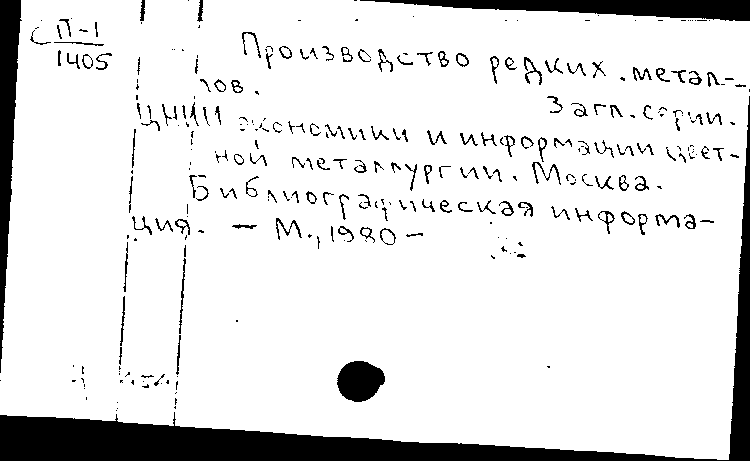 с П-1
1405
Производство редких метал-
лов.
Загл. серии.
ЦНИИ экономики и информации цвет-
ной металлургии. Москва.
Библиографическая информа-
ция. — М., 1980 —